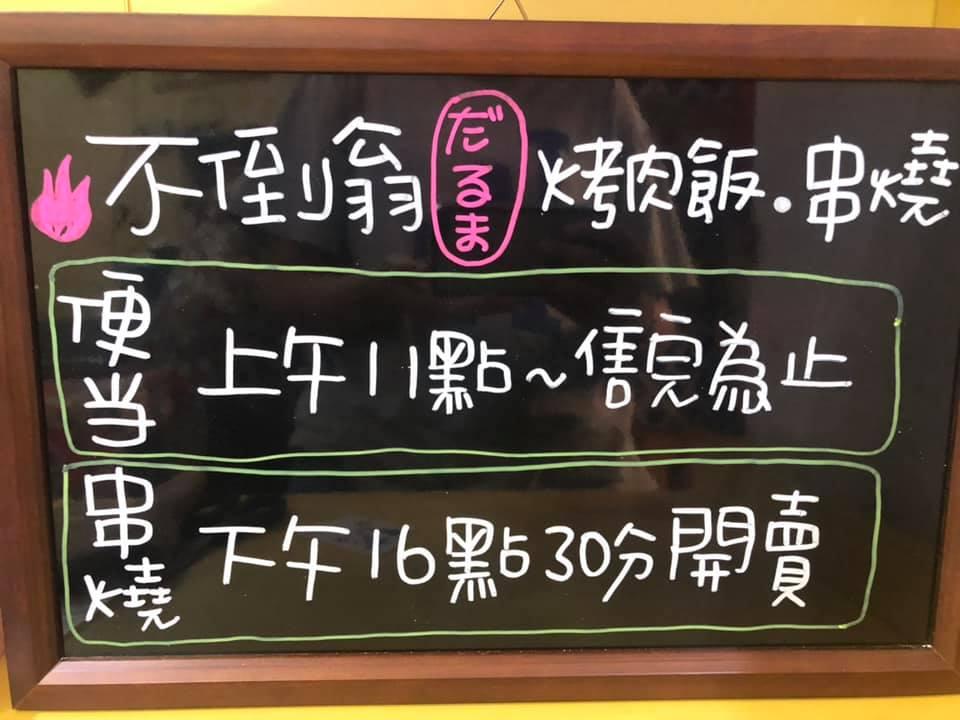 不倒翁 だるま 烤肉飯.串燒
便当 上午11點~售完為止
串燒 下午16點30分開賣